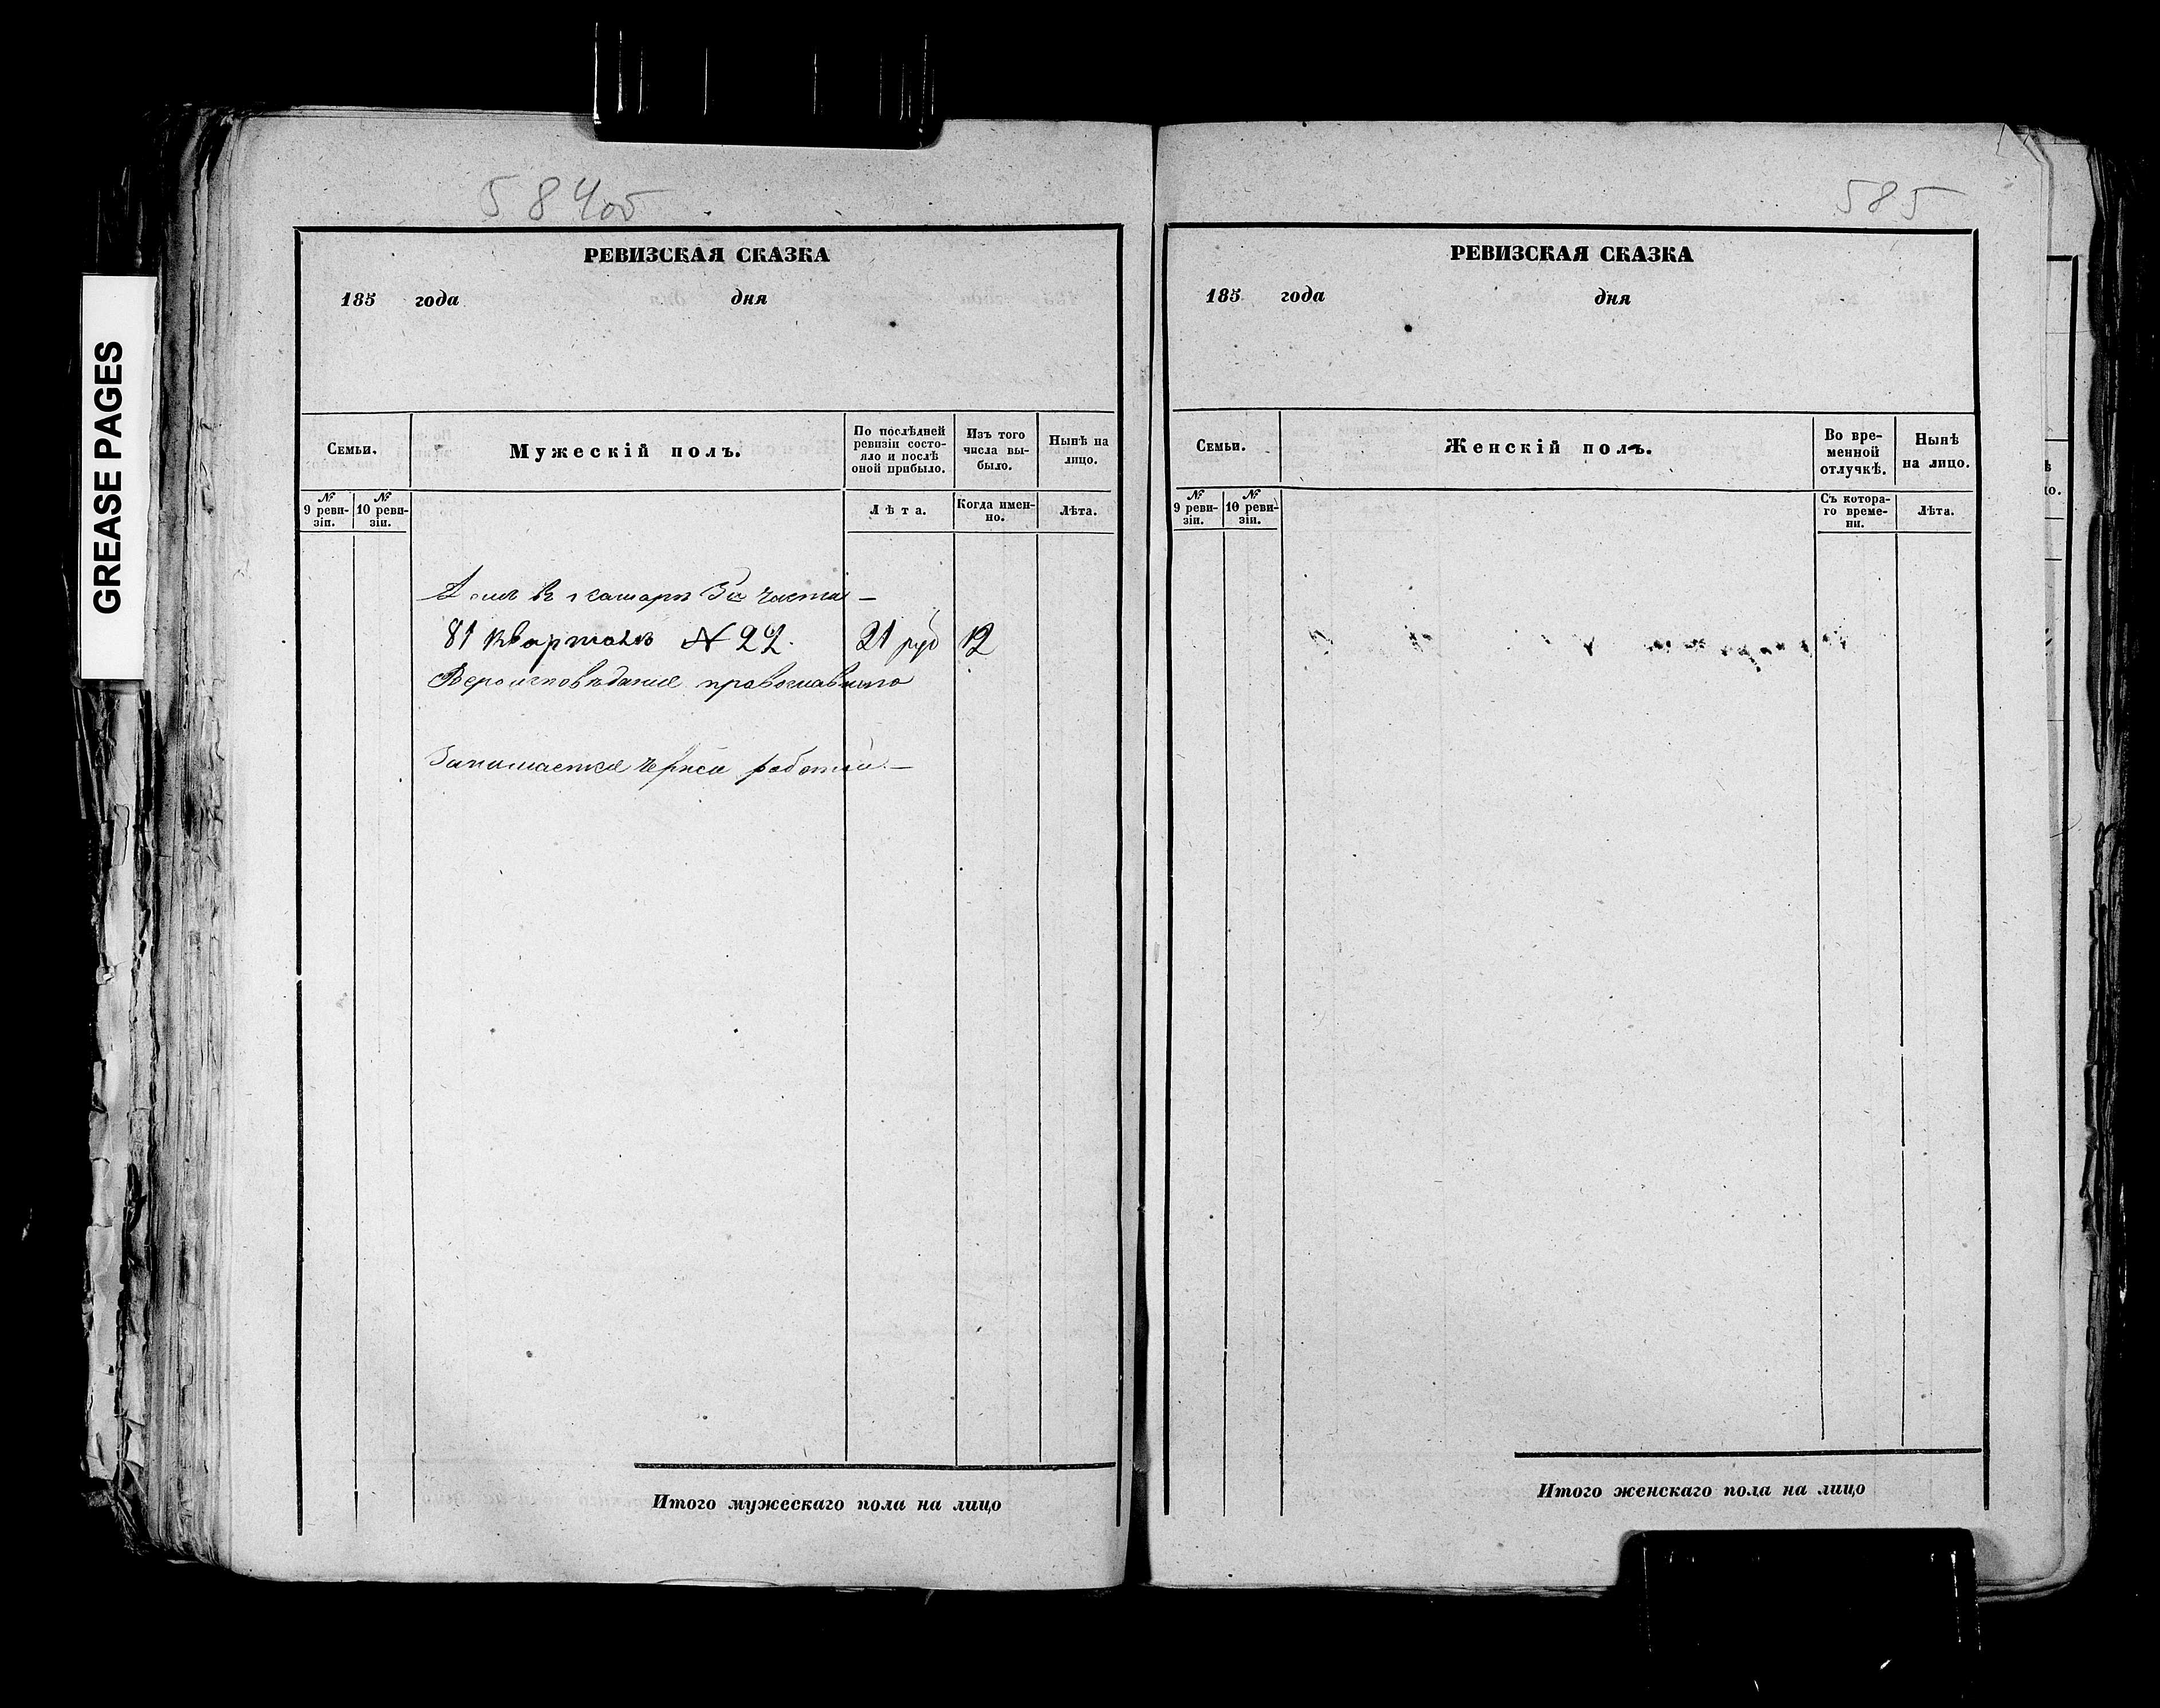 GREASE PAGES
584об
РЕВИЗСКАЯ СКАЗКА
185 года дня
Семьи.
Мужескій полъ.
По послѣдней ревизіи состояло и послѣ оной прибыло.
Изъ того числа выбыло.
Нынѣ на лицо.
№ 9 ревизіи.
№ 10 ревизіи.
Лѣта.
Когда именно.
Лѣта.
Домъ в г Самаре 3й части —
81 кварталъ № 22. 21 руб 12
Вероисповѣдание православнаго
Занимается черной работой. —
Итого мужескаго пола на лицо
585
РЕВИЗСКАЯ СКАЗКА
185 года дня
Семьи.
Женскій полъ.
Во временной отлучкѣ.
Нынѣ на лицо.
№ 9 ревизіи.
№ 10 ревизіи.
Съ котораго времени.
Лѣта.
Итого женскаго пола на лицо